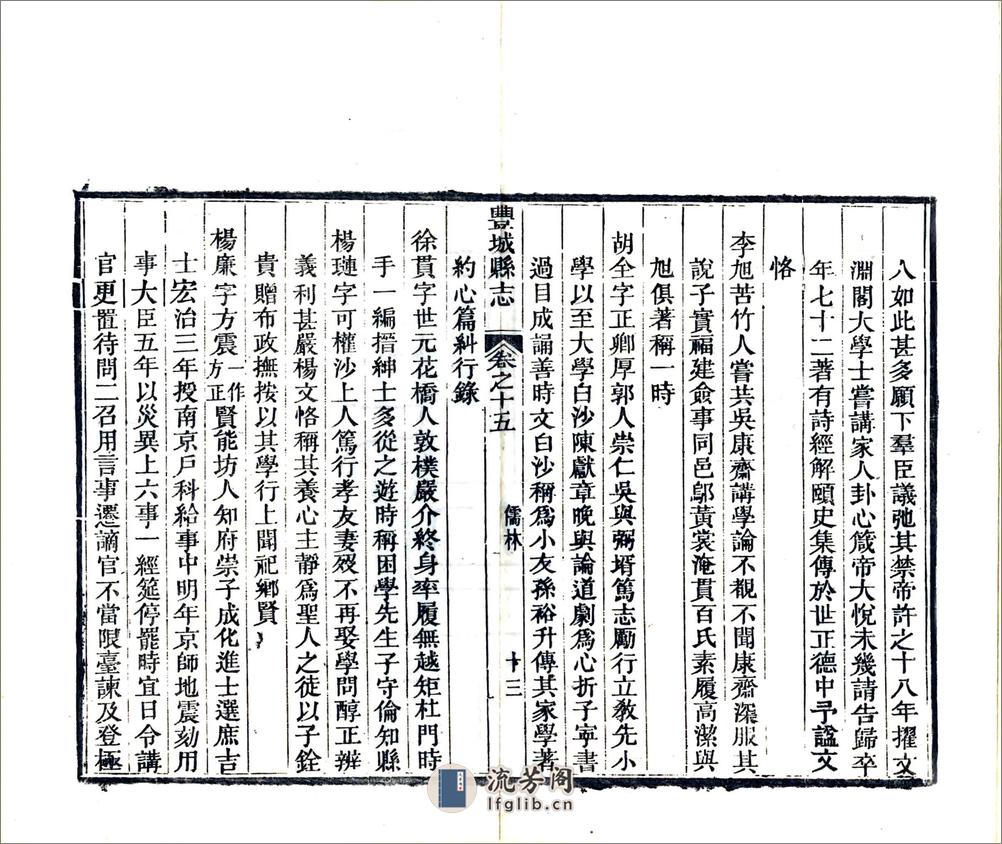 人如此甚多願下羣臣議弛其禁帝許之十八年擢文
淵閣大學士嘗講家人卦心箴帝大悅未幾請告歸卒
年七十二著有詩經解頤史集傳於世正德中予諡文
恪
李旭苦竹人嘗共吳康齋講學論不覩不聞康齋深服其
說子實福建僉事同邑鄔黃裳淹貫百氏素履高潔與
旭俱著稱一時
胡全字正卿厚郭人崇仁吳與弼壻篤志勵行立教先小
學以至大學白沙陳獻章晚與論道劇為心折子寧書
過目成誦善時文白沙稱為小友孫裕升傳其家學著
豐城縣志
卷之十五
儒林
十三
約心篇糾行錄
徐貫字世元花橋人敦樸嚴介終身率履無越矩杜門時
手一編搢紳士多從之遊時稱困學先生子守倫知縣
楊璉字可權沙上人篤行孝友妻歿不再娶學問醇正辨
義利甚嚴楊文恪稱其養心主靜為聖人之徒以子銓
貴贈布政撫按以其學行上聞祀鄉賢
楊廉字方震一作方正賢能坊人知府崇子成化進士選庶吉
士宏治三年授南京戶科給事中明年京師地震劾用
事大臣五年以災異上六事一經筵停罷時宜日令講
官更置待問二召用言事遷謫官不當限臺諫及登極
流芳阁
lfglib.cn